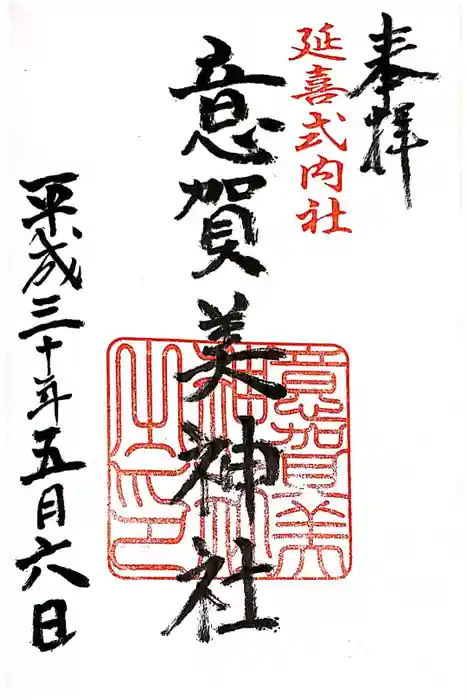 奉拝
延喜式内社
意賀美神社
意賀美
神社
之印
平成三十年五月六日